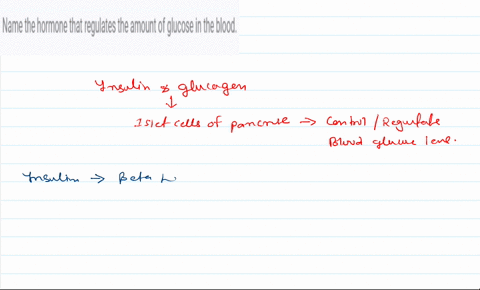 Name the hormone that regulates the amount of glucose in the blood.
Insulin & glucagen
↓
Islet cells of pancrue → Control / Regulate
Blood glucue leve.
Insulin → Beta